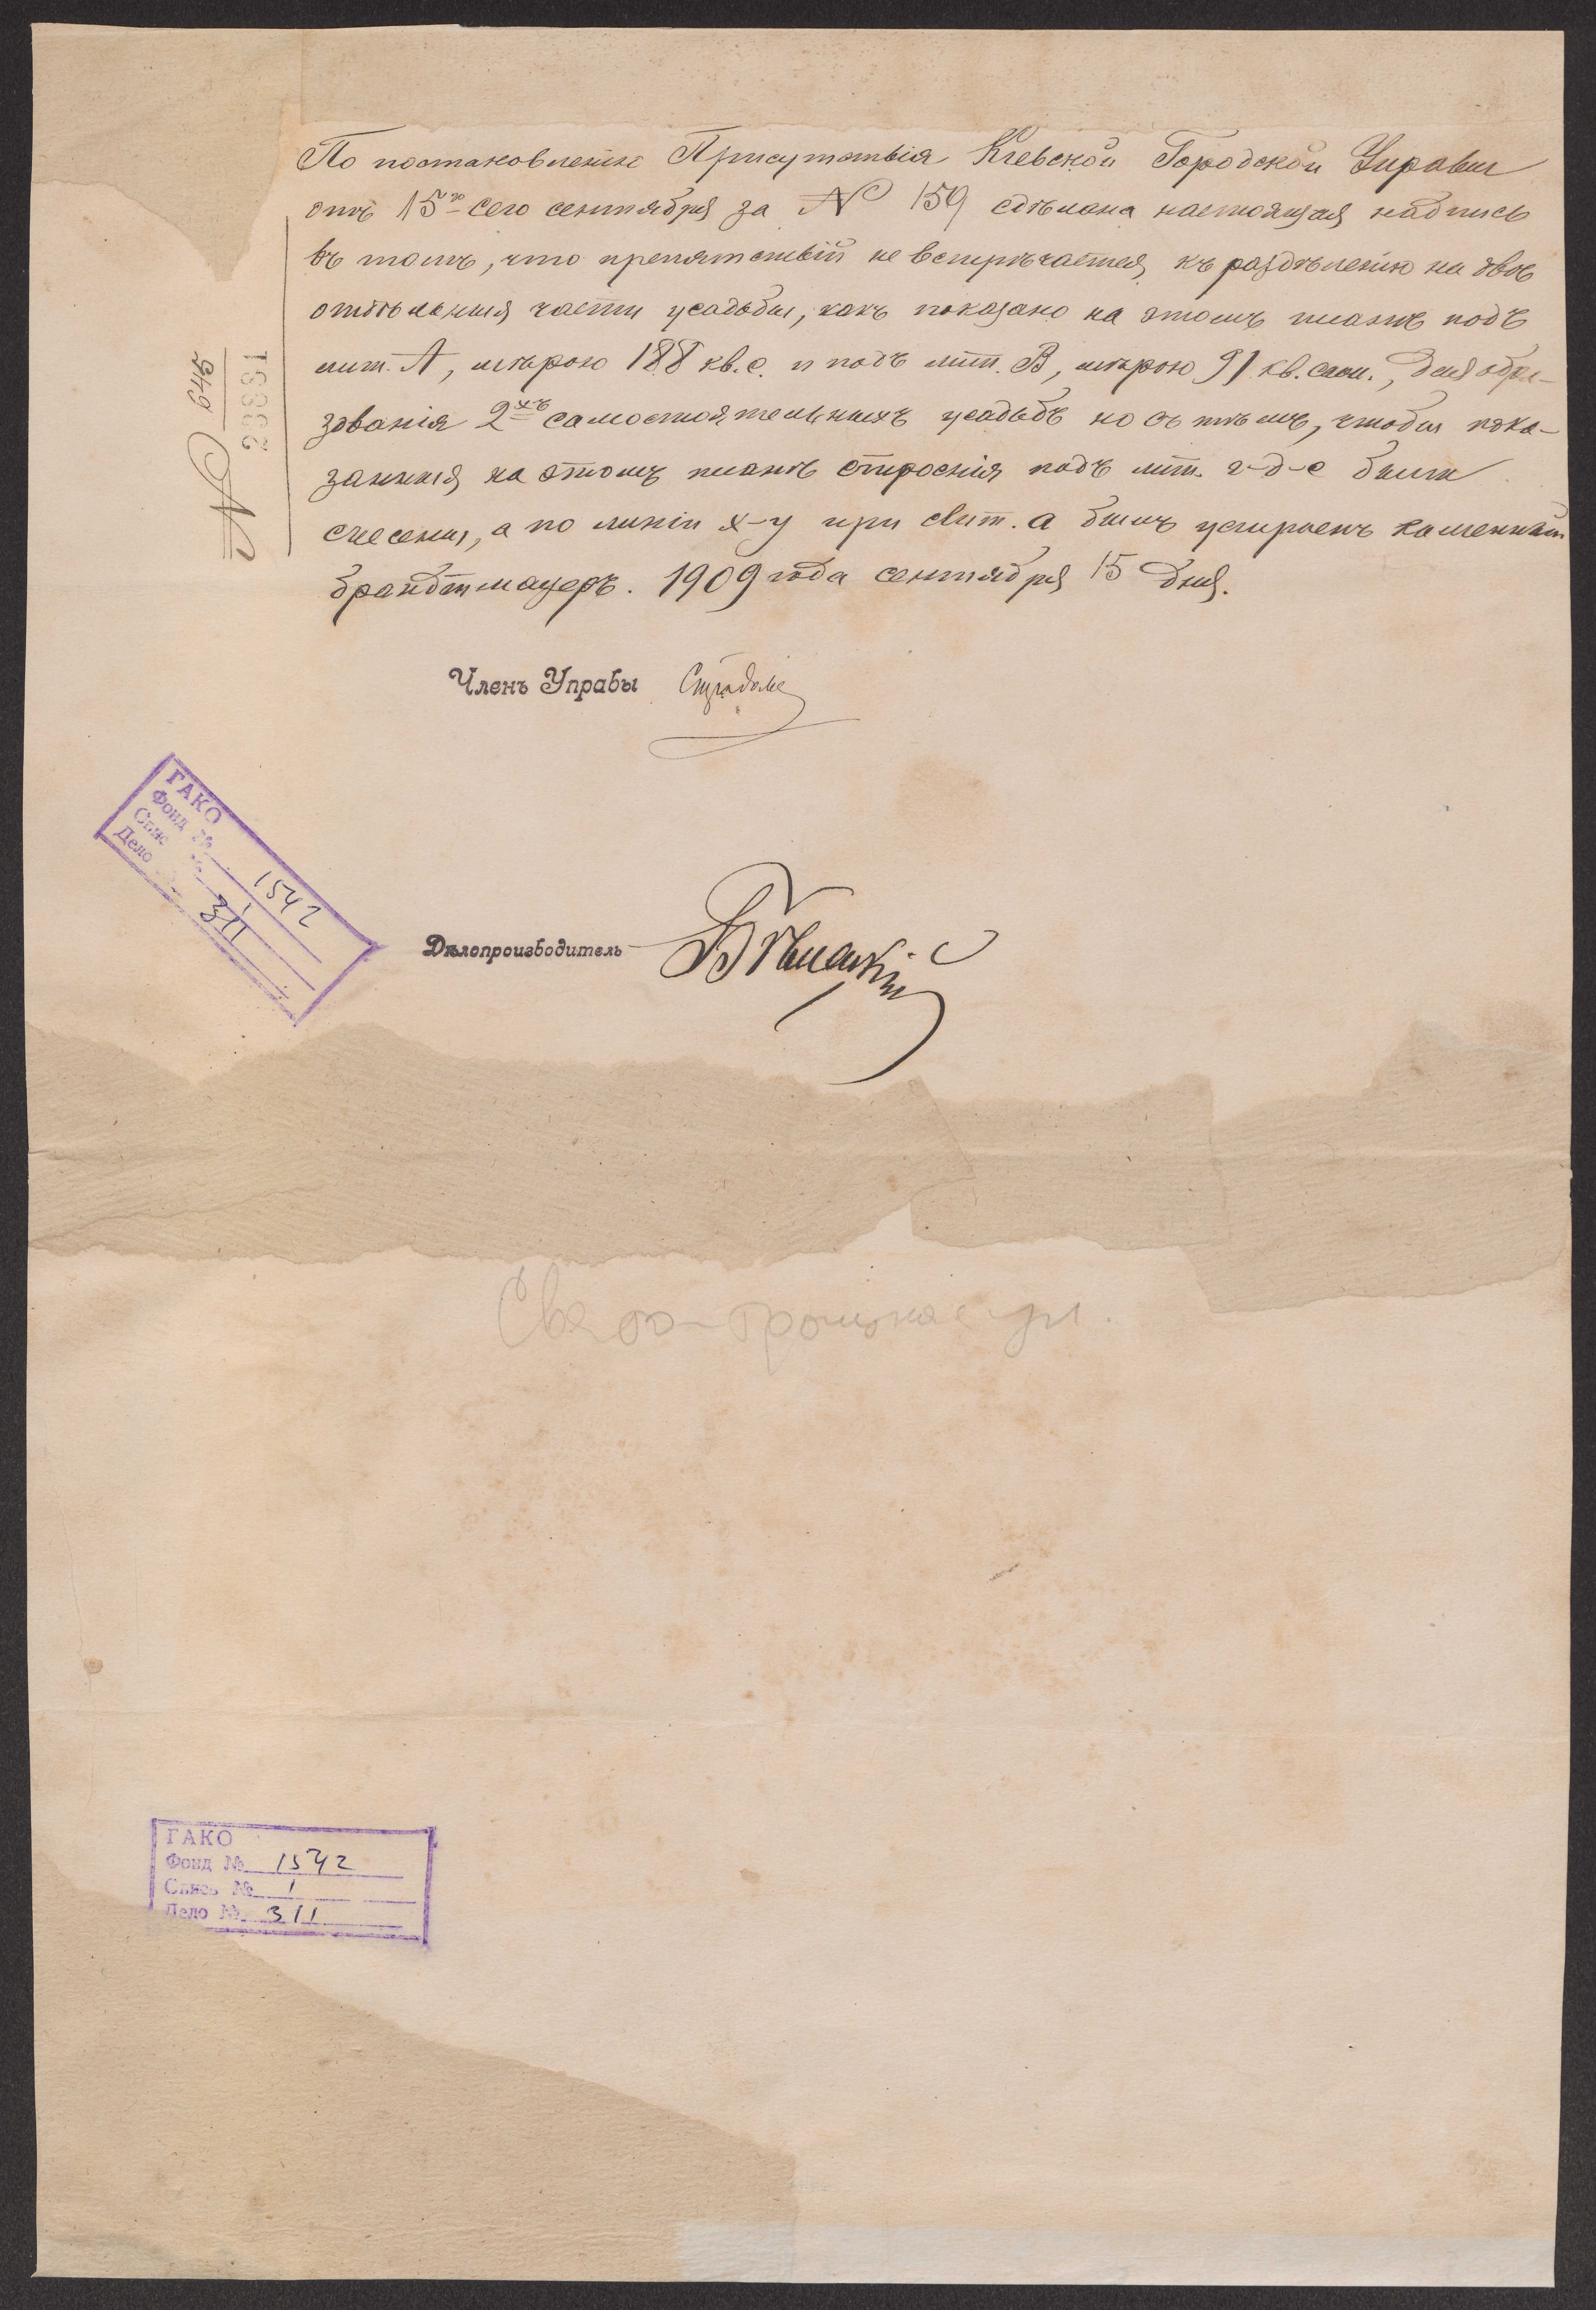 По постановленію Присутствія Кіевской Городской Управы
отъ 15го сего сентября за № 159 сдѣлана настоящая надпись
въ томъ, что препятствій не встрѣчается къ раздѣленію на двѣ
отдѣльныя части усадьбы, какъ показано на этомъ планѣ подъ
лит. А, мѣрою 188 кв. с. и подъ лит. В, мѣрою 91 кв. саж., для обра-
зованія 2хъ самостоятельныхъ усадьбъ но съ тѣмъ, чтобы пока-
занныя на этомъ планѣ строенія подъ лит. г-д-е были
снесены, а по линіи х-у при лит. а былъ устроенъ каменный
брандтмауеръ. 1909 года сентября 15 дня.
№ 549
23881
Членъ Управы
ГАКО
Фонд № 1542
Опис № 1
Дело 311
Дѣлопроизводитель
Свято-Троицкая ул.
ГАКО
Фонд № 1542
Опись № 1
Дело № 311